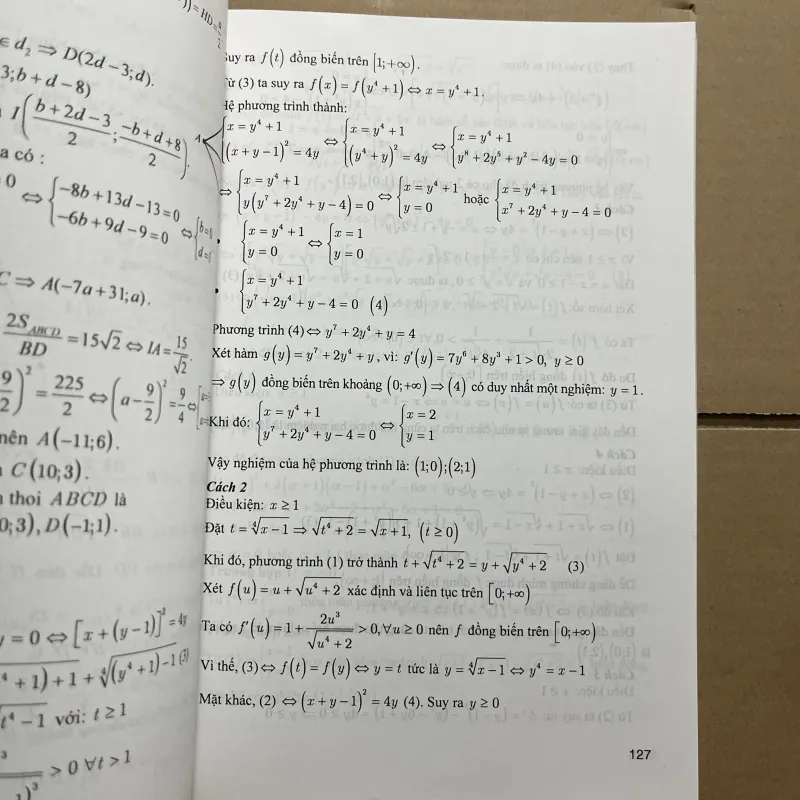 )) = HD =
∈ d₂ ⇒ D(2d − 3; d).
3; b + d − 8)
I((b + 2d − 3)/2; (−b + d + 8)/2).
a có :
0 ⇔ { −8b + 13d − 13 = 0
−6b + 9d − 9 = 0 ⇔ { b = 1
d = 1
C ⇒ A(−7a + 31; a).
2S_ABCD/BD = 15√2 ⇔ IA = 15/√2.
9/2)² = 225/2 ⇔ (a − 9/2)² = 9/4 ⇔
nên A(−11; 6).
C(10; 3).
thoi ABCD là
0; 3), D(−1; 1).
y = 0 ⇔ [x + (y − 1)]² = 4y
⁴ + 1) + 1 + ⁴√((y⁴ + 1) − 1 (3)
t⁴ − 1 với: t ≥ 1
3 > 0 ∀t > 1
1)³
Suy ra f(t) đồng biến trên [1; +∞).
Từ (3) ta suy ra f(x) = f(y⁴ + 1) ⇔ x = y⁴ + 1.
Hệ phương trình thành:
{ x = y⁴ + 1 ⇔ { x = y⁴ + 1 ⇔ { x = y⁴ + 1
(x + y − 1)² = 4y (y⁴ + y)² = 4y y⁸ + 2y⁵ + y² − 4y = 0
⇔ { x = y⁴ + 1 ⇔ { x = y⁴ + 1 hoặc { x = y⁴ + 1
y(y⁷ + 2y⁴ + y − 4) = 0 y = 0 x⁷ + 2y⁴ + y − 4 = 0
• { x = y⁴ + 1 ⇔ { x = 1
y = 0 y = 0
• { x = y⁴ + 1
y⁷ + 2y⁴ + y − 4 = 0 (4)
Phương trình (4) ⇔ y⁷ + 2y⁴ + y = 4
Xét hàm g(y) = y⁷ + 2y⁴ + y, vì: g'(y) = 7y⁶ + 8y³ + 1 > 0, y ≥ 0
⇒ g(y) đồng biến trên khoảng (0; +∞) ⇒ (4) có duy nhất một nghiệm: y = 1.
Khi đó: { x = y⁴ + 1 ⇔ { x = 2
y⁷ + 2y⁴ + y − 4 = 0 y = 1
Vậy nghiệm của hệ phương trình là: (1; 0); (2; 1)
Cách 2
Điều kiện: x ≥ 1
Đặt t = ⁴√(x − 1) ⇒ √(t⁴ + 2) = √(x + 1), (t ≥ 0)
Khi đó, phương trình (1) trở thành t + √(t⁴ + 2) = y + √(y⁴ + 2) (3)
Xét f(u) = u + √(u⁴ + 2) xác định và liên tục trên [0; +∞)
Ta có f'(u) = 1 + 2u³/√(u⁴ + 2) > 0, ∀u ≥ 0 nên f đồng biến trên [0; +∞)
Vì thế, (3) ⇔ f(t) = f(y) ⇔ y = t tức là y = ⁴√(x − 1) ⇔ y⁴ = x − 1
Mặt khác, (2) ⇔ (x + y − 1)² = 4y (4). Suy ra y ≥ 0
127